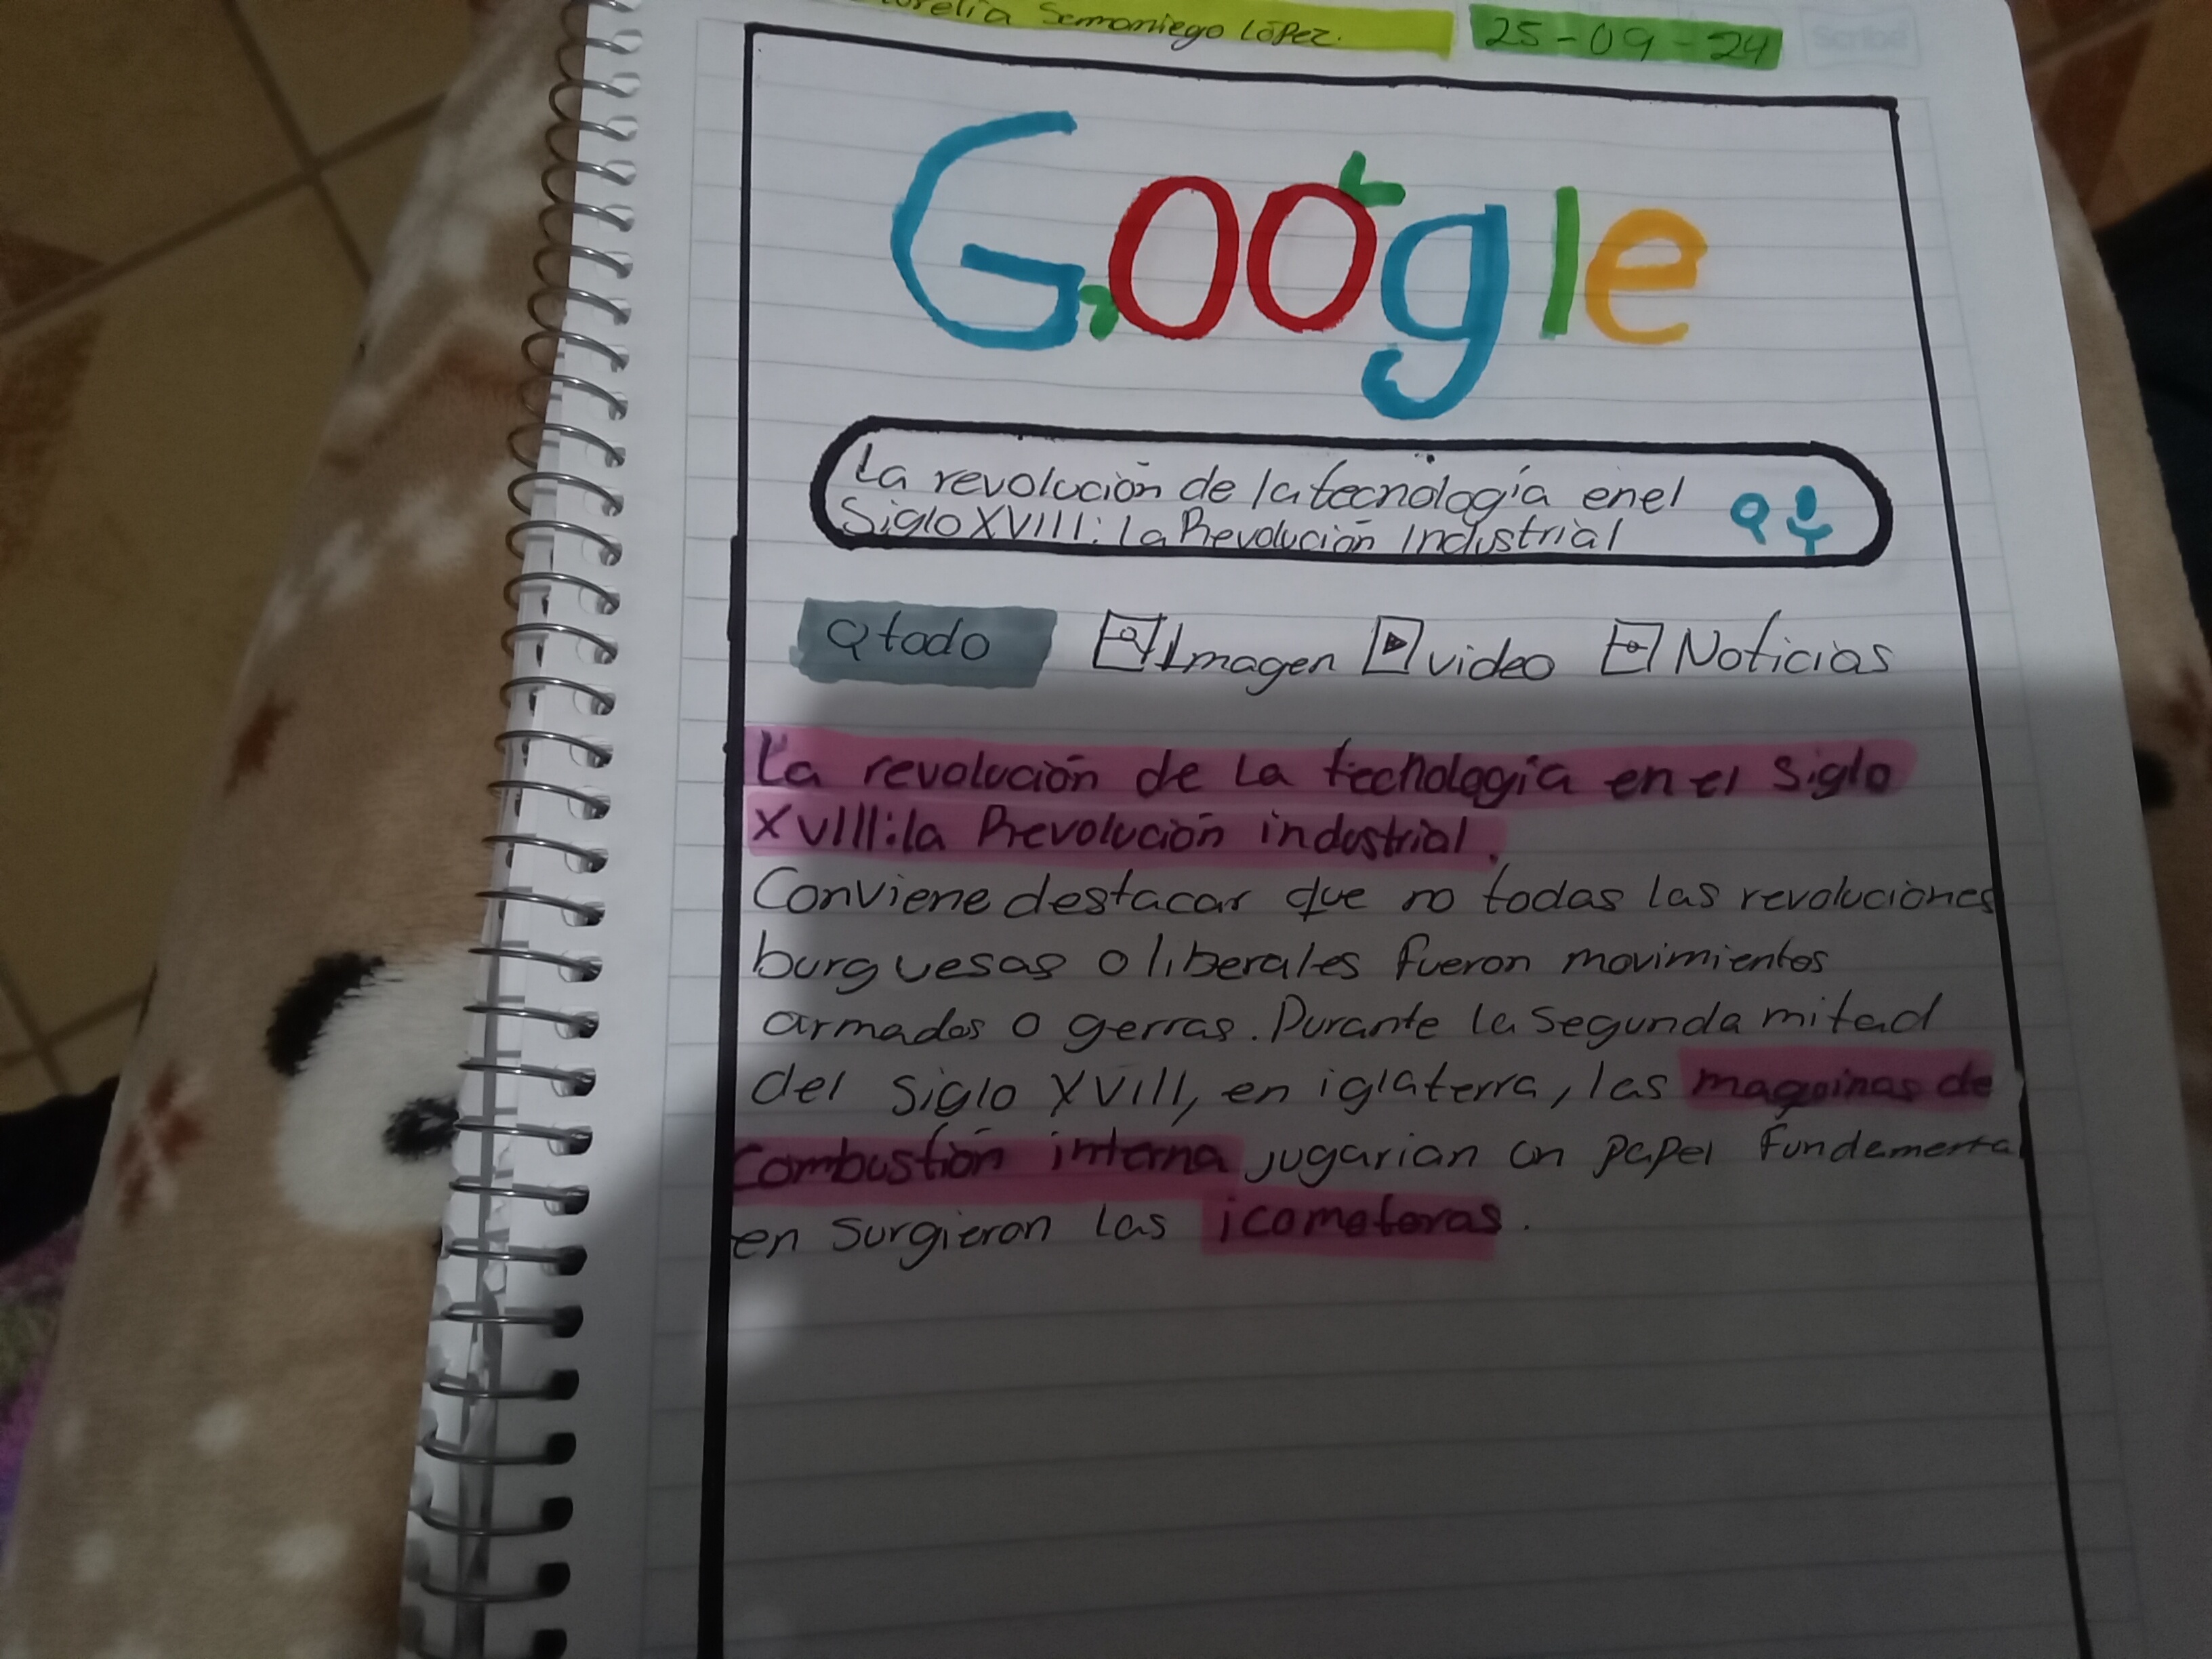 Samaniego López.
25-09-24
Scribe
Google
La revolución de la tecnología en el
Siglo XVIII: la Revolución Industrial
todo Imagen video Noticias
La revolución de la tecnología en el Siglo
XVIII: la Revolución industrial.
Conviene destacar que no todas las revoluciones
burguesas o liberales fueron movimientos
armados o gerras. Durante la segunda mitad
del siglo XVIII, en iglaterra, las maquinas de
combustión interna jugarian un papel fundemental
en surgieron las icomotoras.